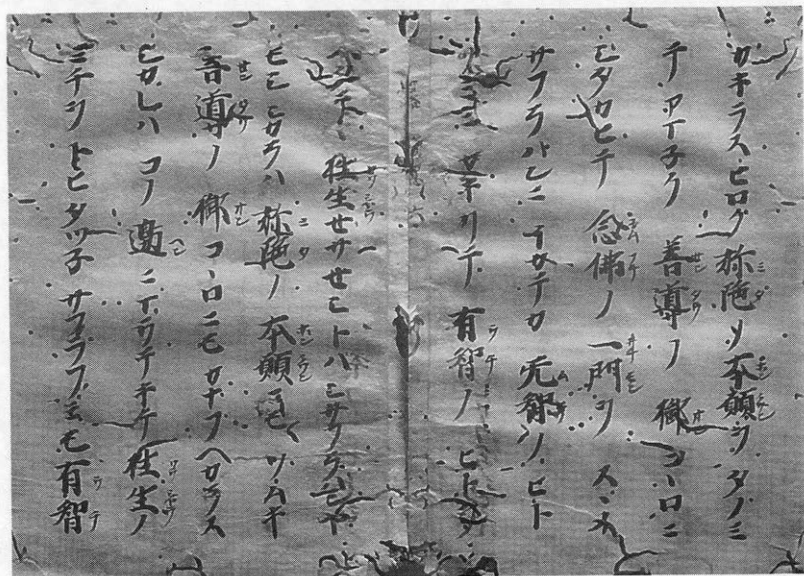 カキラス ヒロク 弥陀ノ 本願ヲ タノミ
テ アマ子ク 善導ノ 御コヽロニ
シタカヒテ 念佛ノ 一門ヲ スヽメ
サフラハムニ イカテカ 无智ノ ヒト
ニノミ カキリテ 有智ノ ヒトヲ
ヘタテヽ 往生セサセシトハシサフラハム
モシ シカラハ 弥陀ノ 本願ニモ ソムキ
善導ノ 御コヽロニモ カナフヘカラス
シカレハ コノ 邊ニマウテキテ 往生ノ
ミチヲ トヒタツ子 サフラフニモ 有智